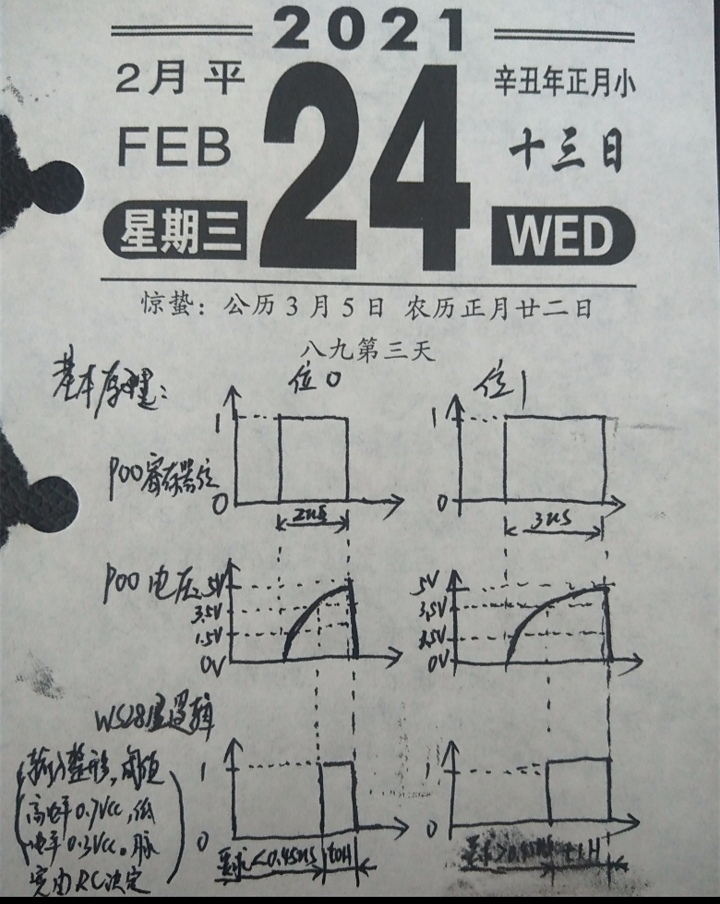 2021
2月 平
24
辛丑年正月小
FEB
十三日
星期三
WED
惊蛰：公历3月5日 农历正月廿二日
八九第三天
基本原理：
位0
位1
1
1
P00寄存器位
0
0
2us
3us
P00电压
5V
5V
3.5V
3.5V
1.5V
1.5V
0V
0V
WS28里逻辑
(输入整形，阈值
高电平0.7Vcc，低
电平0.3Vcc。脉
宽由RC决定)
1
1
0
0
要求<0.45us
t0H
t1H